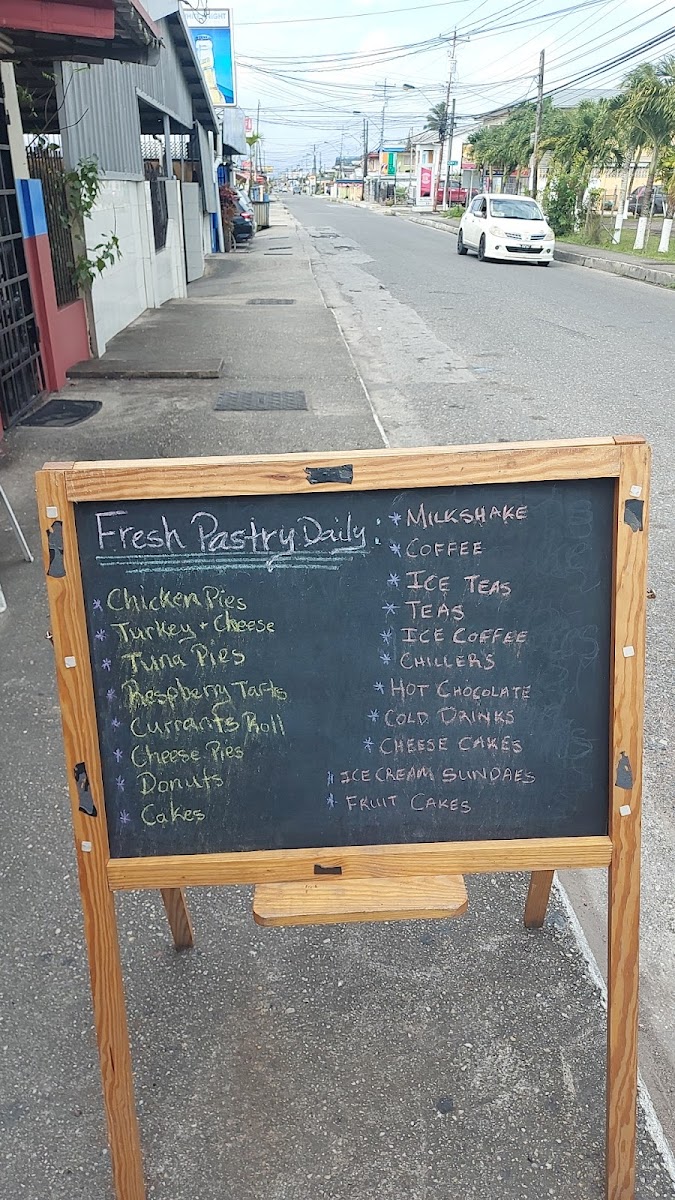 Fresh Pastry Daily:
* Chicken Pies
* Turkey + Cheese
* Tuna Pies
* Respberry Tarts
* Currants Roll
* Cheese Pies
* Donuts
* Cakes
* MILKSHAKE
* COFFEE
* ICE TEAS
* TEAS
* ICE COFFEE
* CHILLERS
* HOT CHOCOLATE
* COLD DRINKS
* CHEESE CAKES
* ICE CREAM SUNDAES
* FRUIT CAKES